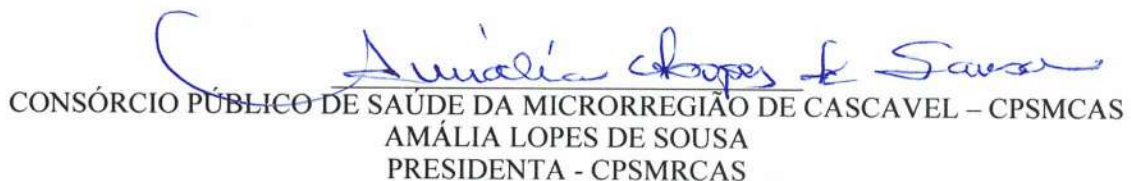 Amália Lopes de Sousa
CONSÓRCIO PÚBLICO DE SAÚDE DA MICRORREGIÃO DE CASCAVEL – CPSMCAS
AMÁLIA LOPES DE SOUSA
PRESIDENTA - CPSMRCAS